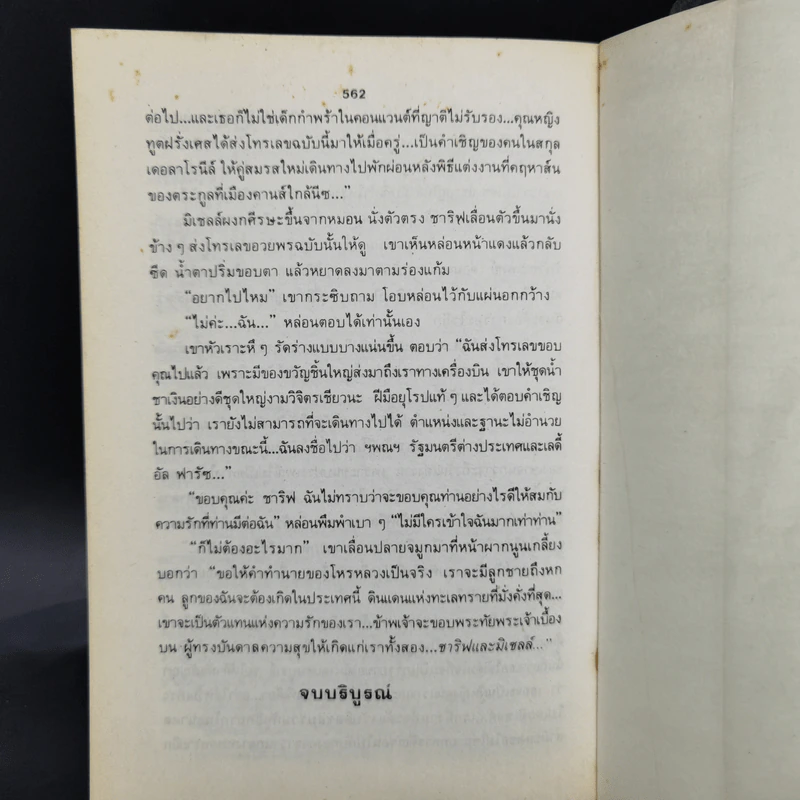 562
ต่อไป...และเธอก็ไม่ใช่เด็กกำพร้าในคอนแวนต์ที่ญาติไม่รับรอง...คุณหญิง
ทูตฝรั่งเศสได้ส่งโทรเลขฉบับนี้มาให้เมื่อครู่...เป็นคำเชิญของคนในสกุล
เดอลาโรนีล์ ให้คู่สมรสใหม่เดินทางไปพักผ่อนหลังพิธีแต่งงานที่คฤหาส์น
ของตระกูลที่เมืองคานส์ใกล้นีซ..."
มิเชลล์ผงกศีรษะขึ้นจากหมอน นั่งตัวตรง ชาริฟเลื่อนตัวขึ้นมานั่ง
ข้าง ๆ ส่งโทรเลขอวยพรฉบับนั้นให้ดู เขาเห็นหล่อนหน้าแดงแล้วกลับ
ซีด น้ำตาปริ่มขอบตา แล้วหยาดลงมาตามร่องแก้ม
"อยากไปไหม" เขากระซิบถาม โอบหล่อนไว้กับแผ่นอกกว้าง
"ไม่ค่ะ...ฉัน..." หล่อนตอบได้เท่านั้นเอง
เขาหัวเราะหึ ๆ รัดร่างแบบบางแน่นขึ้น ตอบว่า "ฉันส่งโทรเลขขอบ
คุณไปแล้ว เพราะมีของขวัญชิ้นใหญ่ส่งมาถึงเราทางเครื่องบิน เขาให้ชุดน้ำ
ชาเงินอย่างดีชุดใหญ่งามวิจิตรเชียวนะ ฝีมือยุโรปแท้ ๆ และได้ตอบคำเชิญ
นั้นไปว่า เรายังไม่สามารถที่จะเดินทางไปได้ ตำแหน่งและฐานะไม่อำนวย
ในการเดินทางขณะนี้...ฉันลงชื่อไปว่า ฯพณฯ รัฐมนตรีต่างประเทศและเลดี้
อัล ฟารัซ..."
"ขอบคุณค่ะ ชาริฟ ฉันไม่ทราบว่าจะขอบคุณท่านอย่างไรดีให้สมกับ
ความรักที่ท่านมีต่อฉัน" หล่อนพึมพำเบา ๆ "ไม่มีใครเข้าใจฉันมากเท่าท่าน"
"ก็ไม่ต้องอะไรมาก" เขาเลื่อนปลายจมูกมาที่หน้าผากนูนเกลี้ยง
บอกว่า "ขอให้คำทำนายของโหรหลวงเป็นจริง เราจะมีลูกชายถึงหก
คน ลูกของฉันจะต้องเกิดในประเทศนี้ ดินแดนแห่งทะเลทรายที่มั่งคั่งที่สุด...
เขาจะเป็นตัวแทนแห่งความรักของเรา...ข้าพเจ้าจะขอบพระทัยพระเจ้าเบื้อง
บน ผู้ทรงบันดาลความสุขให้เกิดแก่เราทั้งสอง...ชาริฟและมิเชลล์..."
จบบริบูรณ์